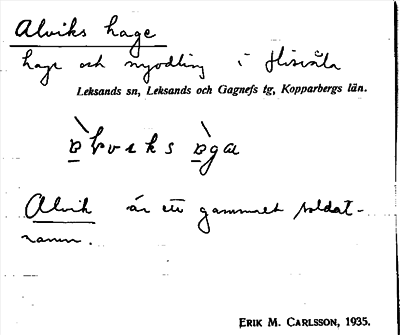 Alviks hage
hage och nyodling i
Leksands sn, Leksands och Gagnefs tg, Kopparbergs län.
Alvik är ett gammalt soldat-
namn.
ERIK M. CARLSSON, 1935.